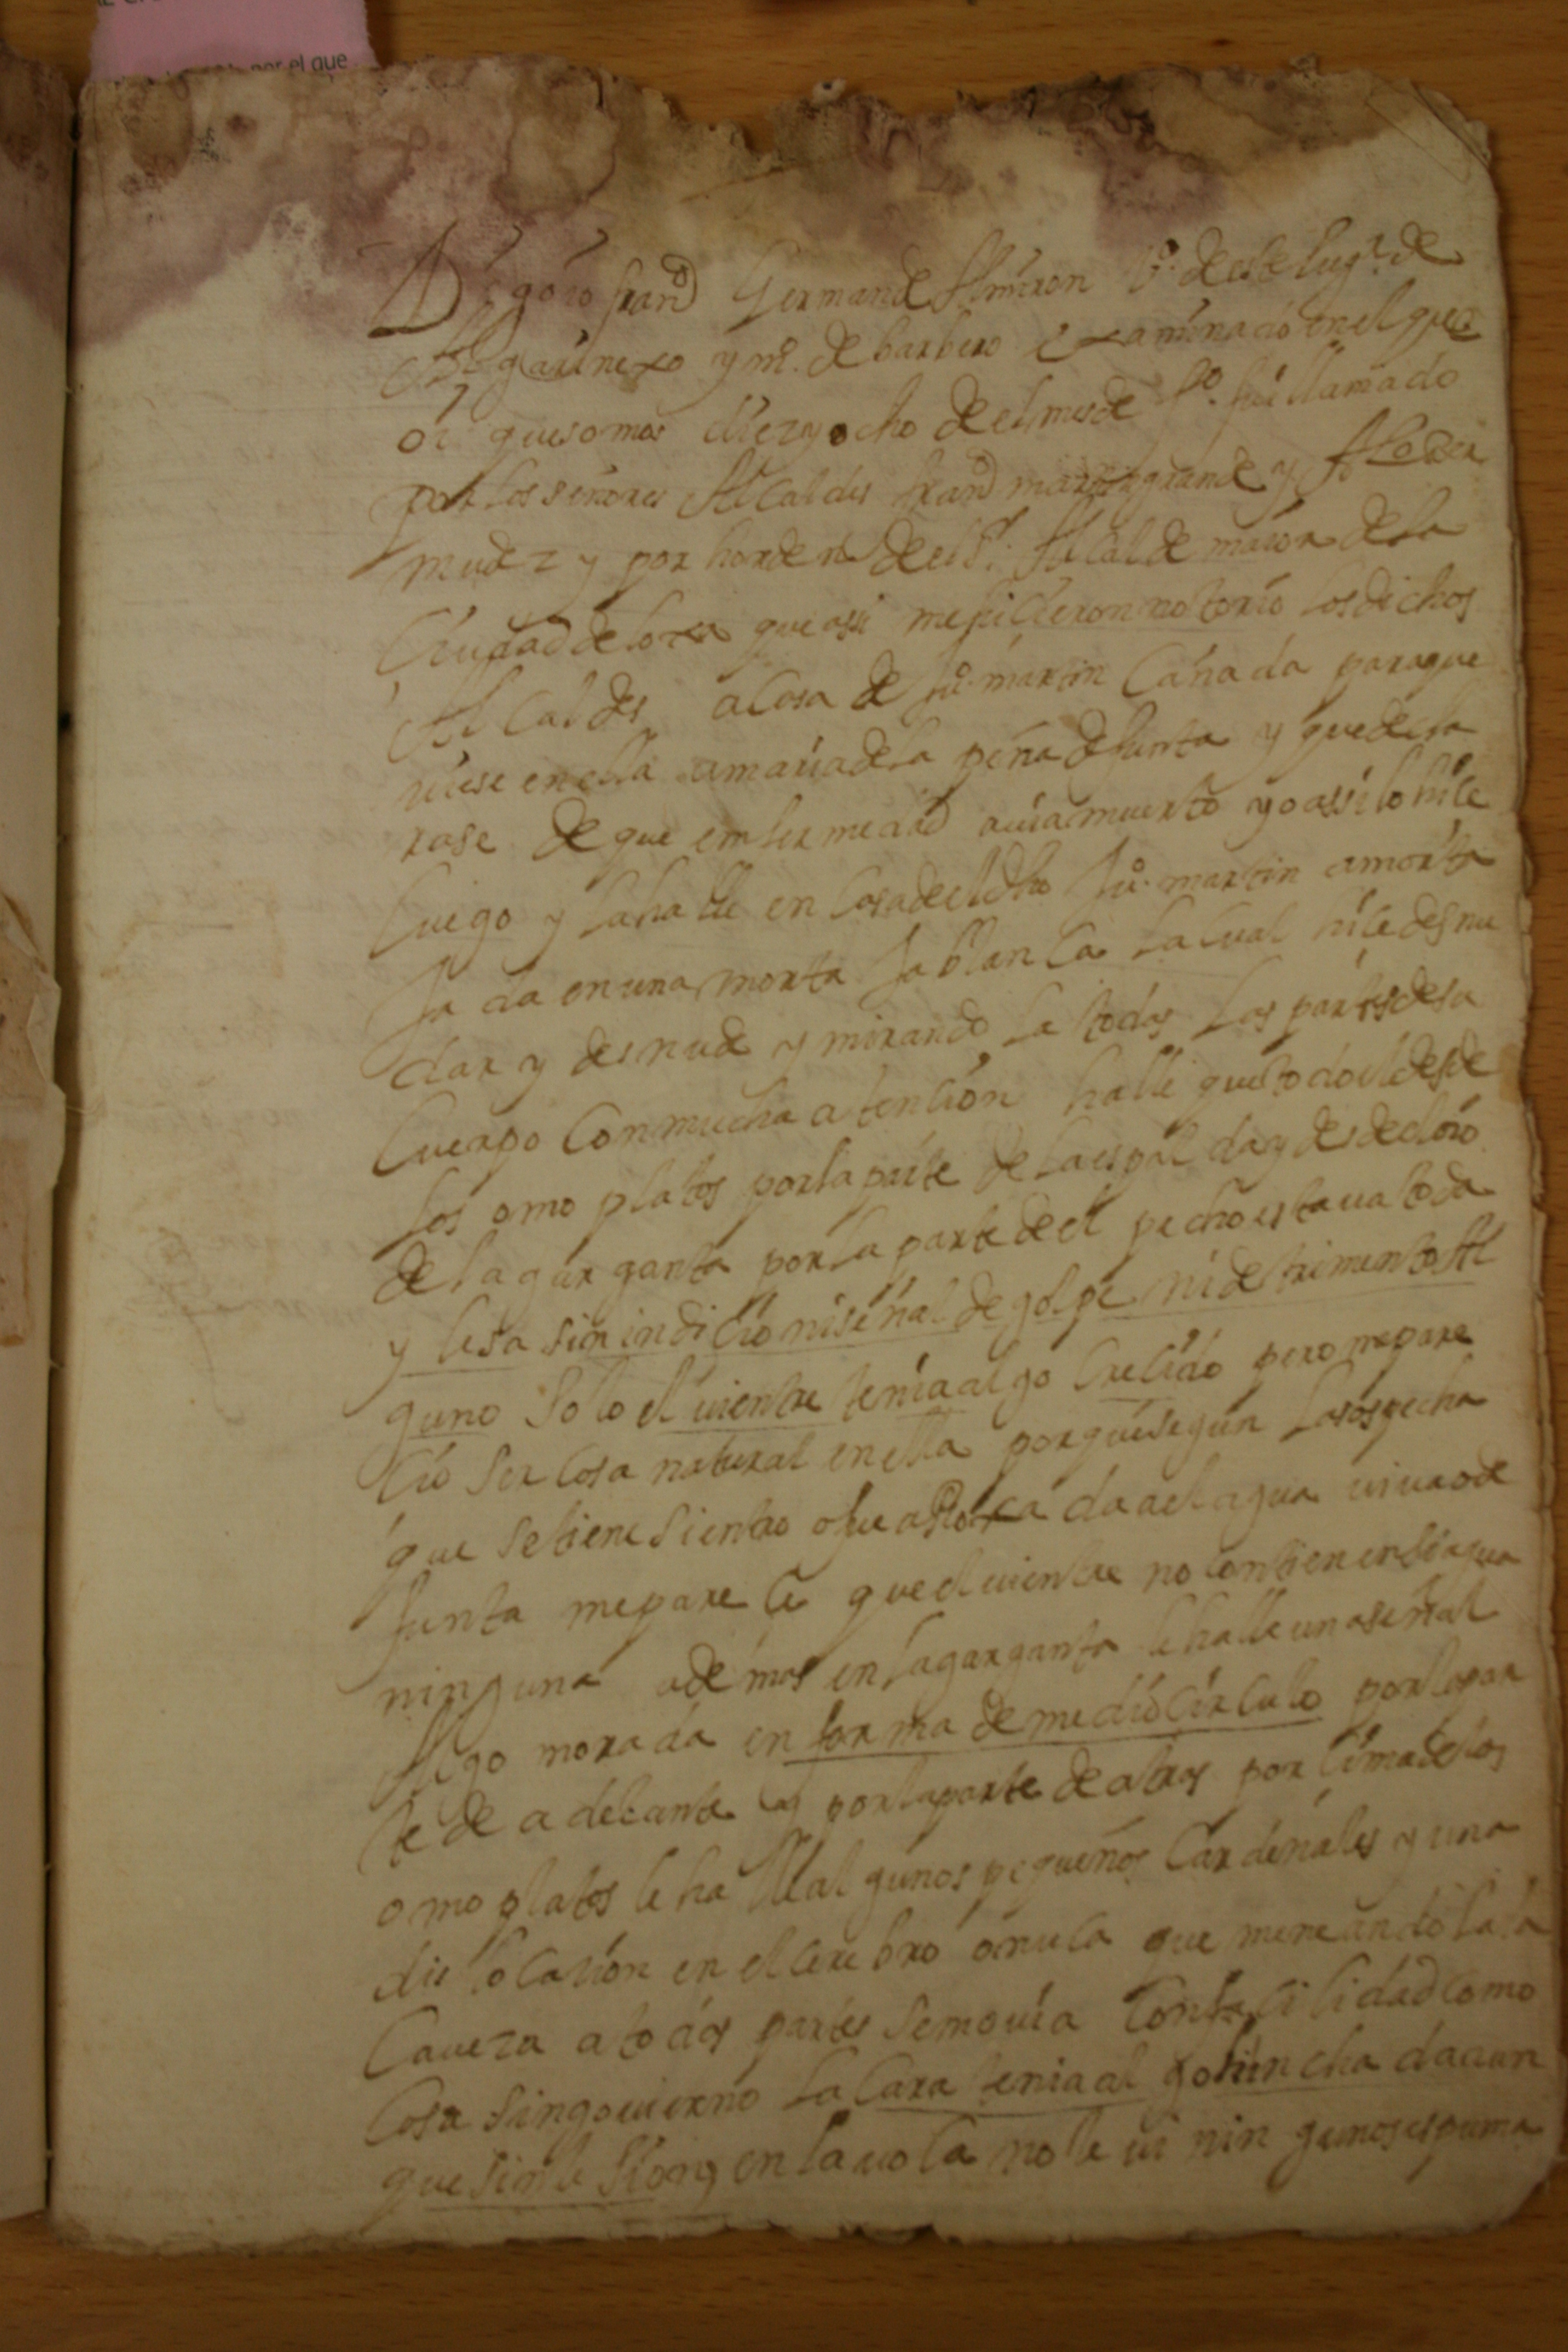 por el que
Digo io fran.co German de Almiron V.o de este lug.r de
Algarinexo y m.o de barbero examinado en el que
oi que somos diez y ocho de el mes de fui llamado
por los señores Alcaldes fran.co martin grande y
mudez y por horden de el S.r Alcalde maior de la
Ciudad de loxa que assi me hicieron notorio los dichos
Alcaldes a Casa de Ju.o martin Cañada para que
viese en ella a maria de la peña difunta y que decla
rase de que emfermedad avia muerto yo assi lo hice
luego y la halle en Casa de el dho Ju.o martin amorta
Ja da en una morta Ja blanca la cual hice desnu
dar y desnude y mirando la todas las partes de su
Cuerpo Con mucha atencion halle que todo el desde
los omo platos por la parte de la espal da y desde el oio
de la gar ganta por la parte de el pecho estava toda
y lesa sin indicio ni señal de golpe ni detrimento Al
guno Solo el vientre tenia algo Crecido pero me pare
cio ser Cosa natural en ella porque segun la sospecha
que se tiene si entro o fue arroxa da a el agua viva o de
funta me pare ce que el vientre no contiene en si agua
ninguna ademas en la garganta le halle una señal
Algo morada en forma de medio circulo por la par
te de adelante y por la parte de atras por cima de los
omo platos le halle al gunos pequeños Cardenales y una
dislocacion en el cerebro o nuca que meneando la la
Caveza a todas partes se movia Con facilidad como
Cosa sin govierno la Cara tenia al go hincha da aun
que sin le sion y en la voca no le vi nin gunos espuma